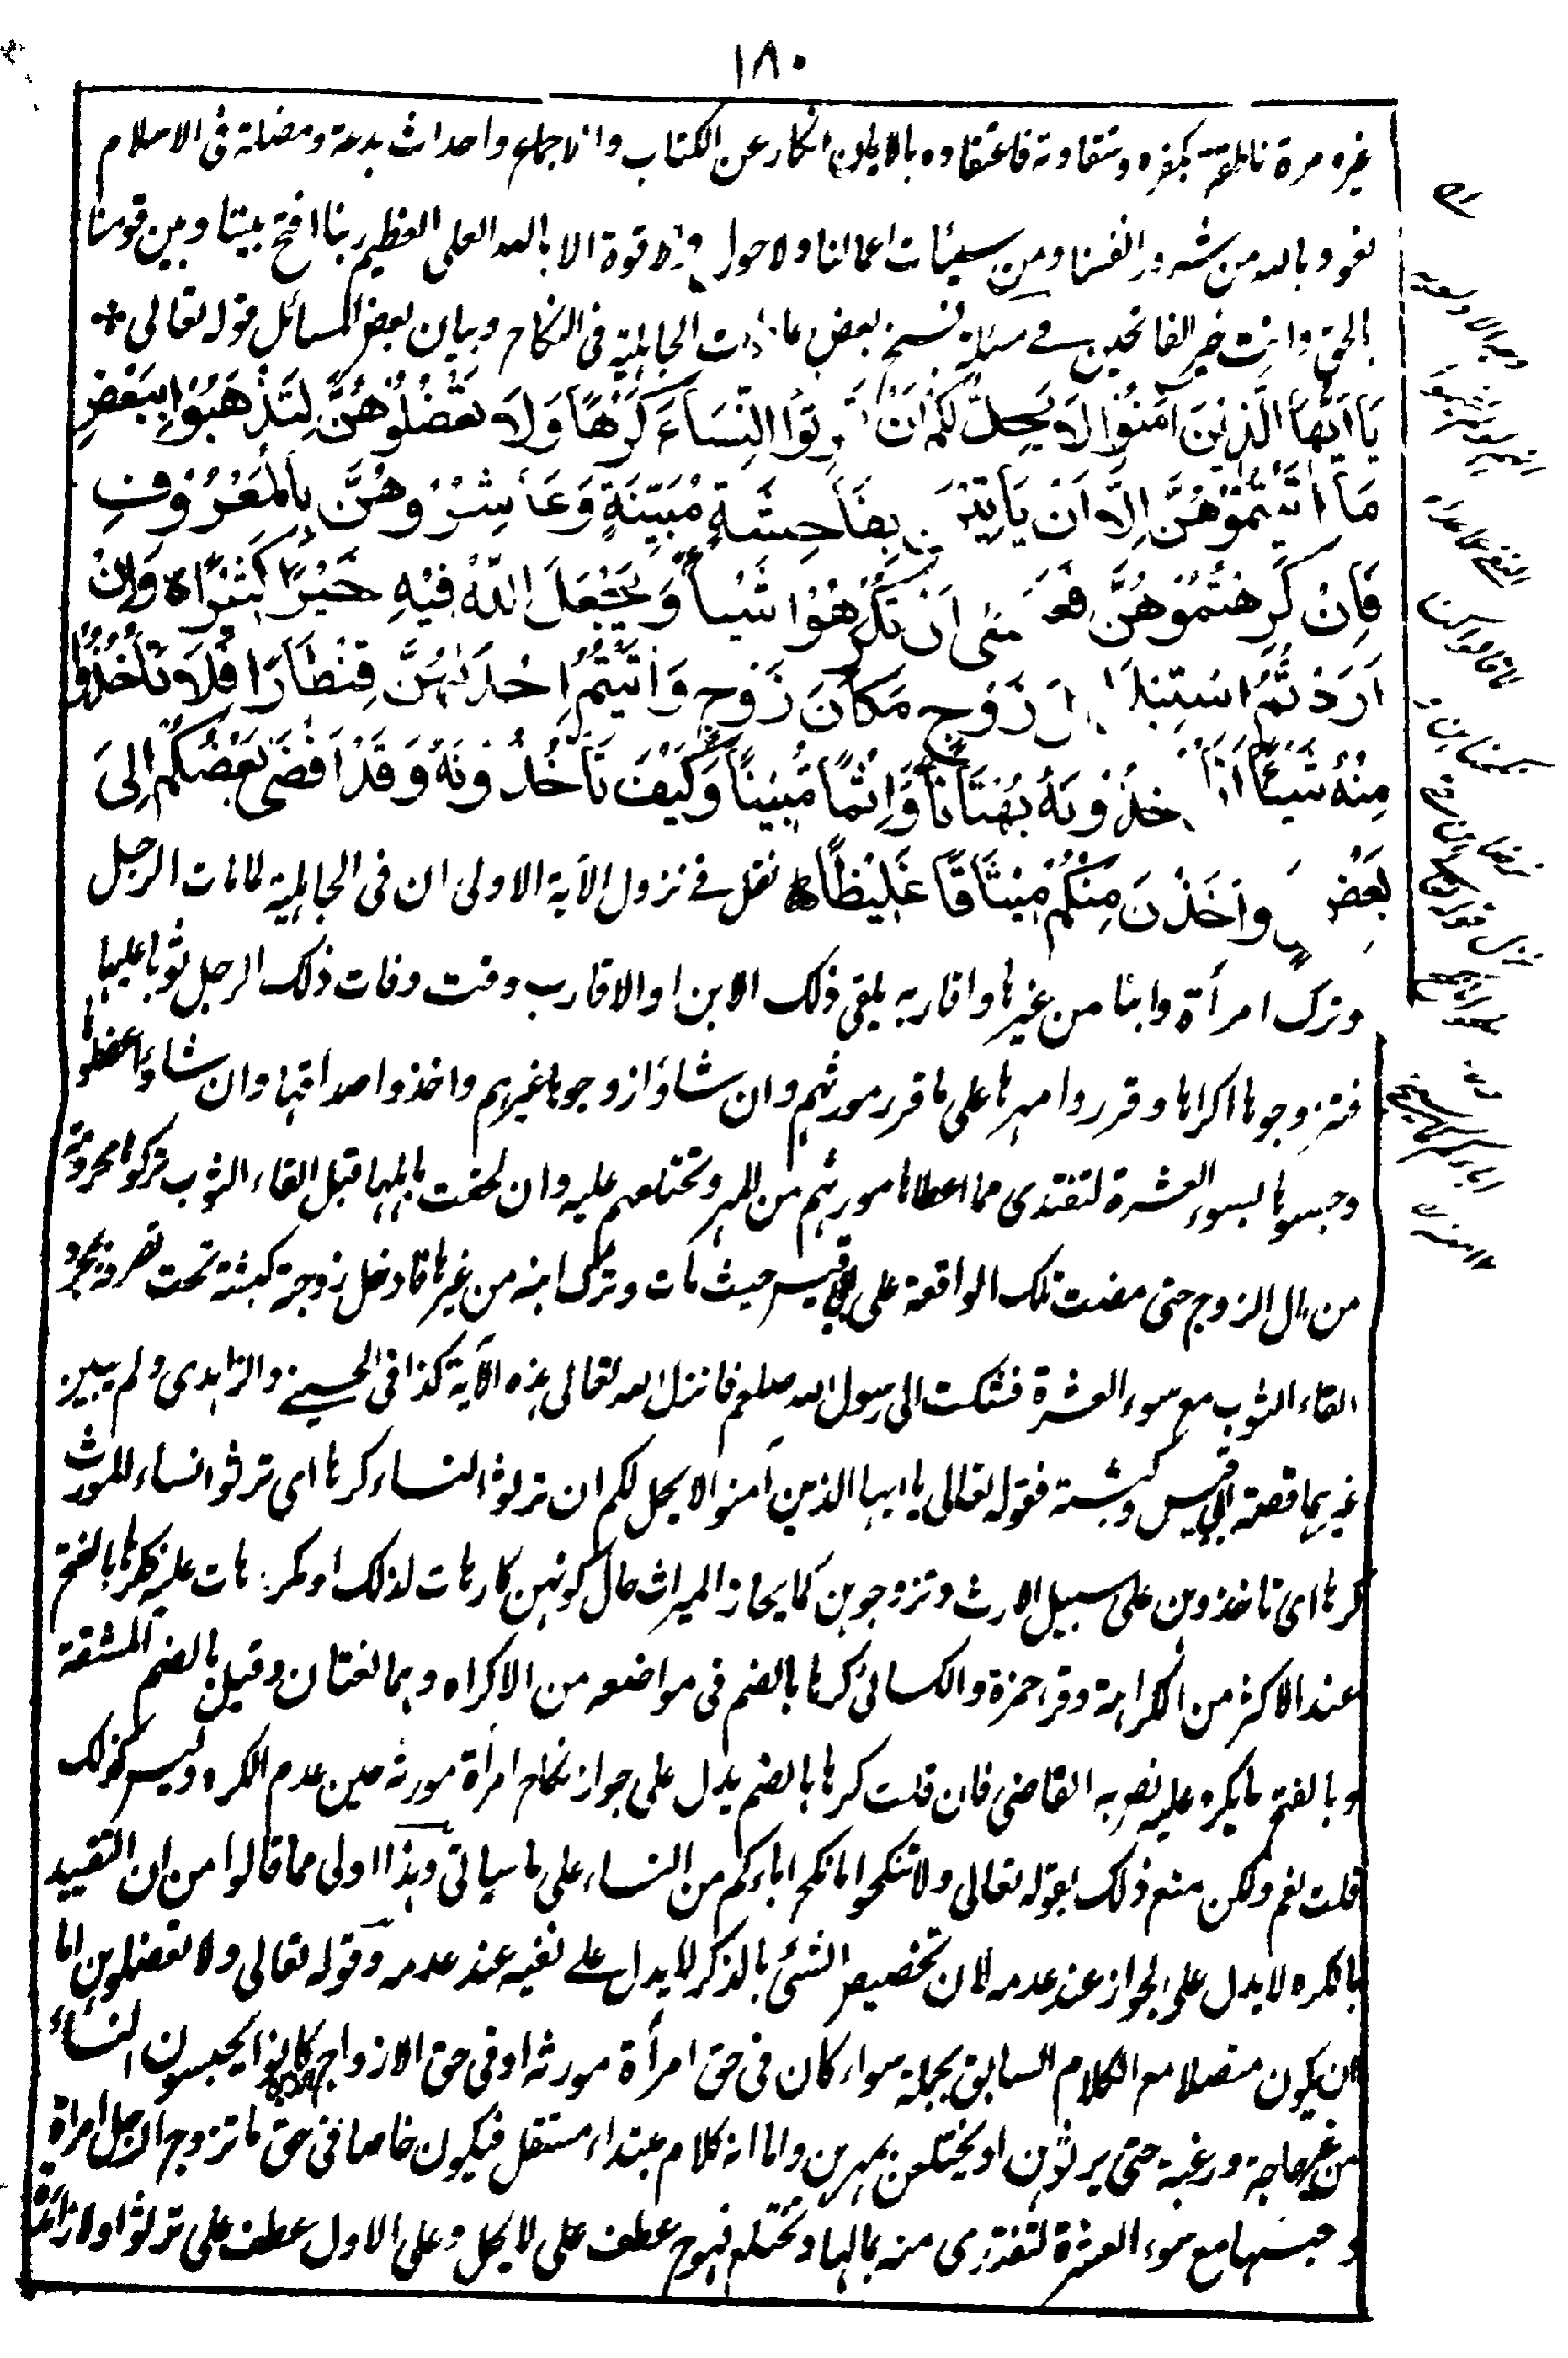 ١٨٠
غيره مرة ناطقة بكفره وشقاوته فاعتقاده بالايمان انكار عن الكتاب والاجماع واحداث بدعة ومضلة فى الاسلام
نعوذ بالله من شرور انفسنا ومن سيئات اعمالنا ولا حول ولا قوة الا بالله العلى العظيم ربنا افتح بيننا وبين قومنا
بالحق وانت خير الفاتحين فى مسئلة نسخ بعض عادات الجاهلية فى النكاح وبيان بعض المسائل قوله تعالى
يَا اَيُّهَا الَّذِيْنَ اٰمَنُوْا لَا يَحِلُّ لَكُمْ اَنْ تَرِثُوا النِّسَاءَ كَرْهًا وَلَا تَعْضُلُوْهُنَّ لِتَذْهَبُوْا بِبَعْضِ
مَا اٰتَيْتُمُوْهُنَّ اِلَّا اَنْ يَاْتِيْنَ بِفَاحِشَةٍ مُّبَيِّنَةٍ وَعَاشِرُوْهُنَّ بِالْمَعْرُوْفِ
فَاِنْ كَرِهْتُمُوْهُنَّ فَعَسٰى اَنْ تَكْرَهُوْا شَيْـًٔا وَّيَجْعَلَ اللّٰهُ فِيْهِ خَيْرًا كَثِيْرًا ه وَاِنْ
اَرَدْتُّمُ اسْتِبْدَالَ زَوْجٍ مَّكَانَ زَوْجٍ وَاٰتَيْتُمْ اِحْدٰىهُنَّ قِنْطَارًا فَلَا تَاْخُذُوْا
مِنْهُ شَيْـًٔا اَتَاْخُذُوْنَهٗ بُهْتَانًا وَّاِثْمًا مُّبِيْنًا وَكَيْفَ تَاْخُذُوْنَهٗ وَقَدْ اَفْضٰى بَعْضُكُمْ اِلٰى
بَعْضٍ وَاَخَذْنَ مِنْكُمْ مِيْثَاقًا غَلِيْظًا ط نقل فى نزول الآية الاولى ان فى الجاهلية لما مات الرجل
وترك امرأة وابنا من غيرها واقاربه يلقى ذلك الابن او الاقارب وقت وفات ذلك الرجل ثوبا عليها
فتزوجوها اكراها وقرروا مهرها على ما قرر مورثهم وان شاؤا زوجوها غيرهم واخذوا صداقها وان شاؤا عضلوها
وحبسوها بسوء العشرة لتفتدى مما اعطاها مورثهم من المهر وتختلعهم عليه وان لحقت باهلها قبل القاء الثوب تركوها محرومة
من مال الزوج حتى مضت تلك الواقعة على ابى قيس حيث مات وترك ابنه من غيرها فادخل زوجة كبشة تحت تصرفه بمجرد
القاء الثوب مع سوء العشرة فشكت الى رسول الله صلعم فانزل الله تعالى هذه الآية كذا فى الحسينى والزاهدى ولم يبين
غيرهما قصة ابى قيس وكبشة فقوله تعالى يا ايها الذين آمنوا لا يحل لكم ان ترثوا النساء كرها اى ترثوا نساء المورث
كرها اى تاخذوهن على سبيل الارث وتزوجوهن كما يحاز الميراث حال كونهن كارهات لذلك او مكرهات عليه فكرها بالفتح
عند الاكثر من الكراهة وقرء حمزة والكسائى كرها بالضم فى مواضعه من الاكراه وهما لغتان وقيل بالضم المشقة
وبالفتح ما يكره عليه نص به القاضى فان قلت كرها بالضم يدل على جواز نكاح امرأة مورثه حين عدم الكره وليس كذلك
قلت نعم ولكن منع ذلك بقوله تعالى ولا تنكحوا ما نكح اباءكم من النساء على ما سياتى وهذا اولى مما قالوا من ان التقييد
بالكره لا يدل على الجواز عند عدمه لان تخصيص الشئ بالذكر لا يدل على نفيه عند عدمه وقوله تعالى ولا تعضلوهن اما
ان يكون متصلا مع الكلام السابق بجملة سواء كان فى حق امرأة مورثه او فى حق الازواج كانوا يحبسون النساء
من غير حاجة ورغبة حتى يرثوهن او يختلعن بمهرهن واما انه كلام مبتداء مستقل فيكون خاصا فى حق ما تزوج الرجل امرأة
وحبسها مع سوء العشرة لتفتدى منه بمالها وتختلع فهو ح عطف على لا يحل وعلى الاول عطف على ترثوا ولا زائدة